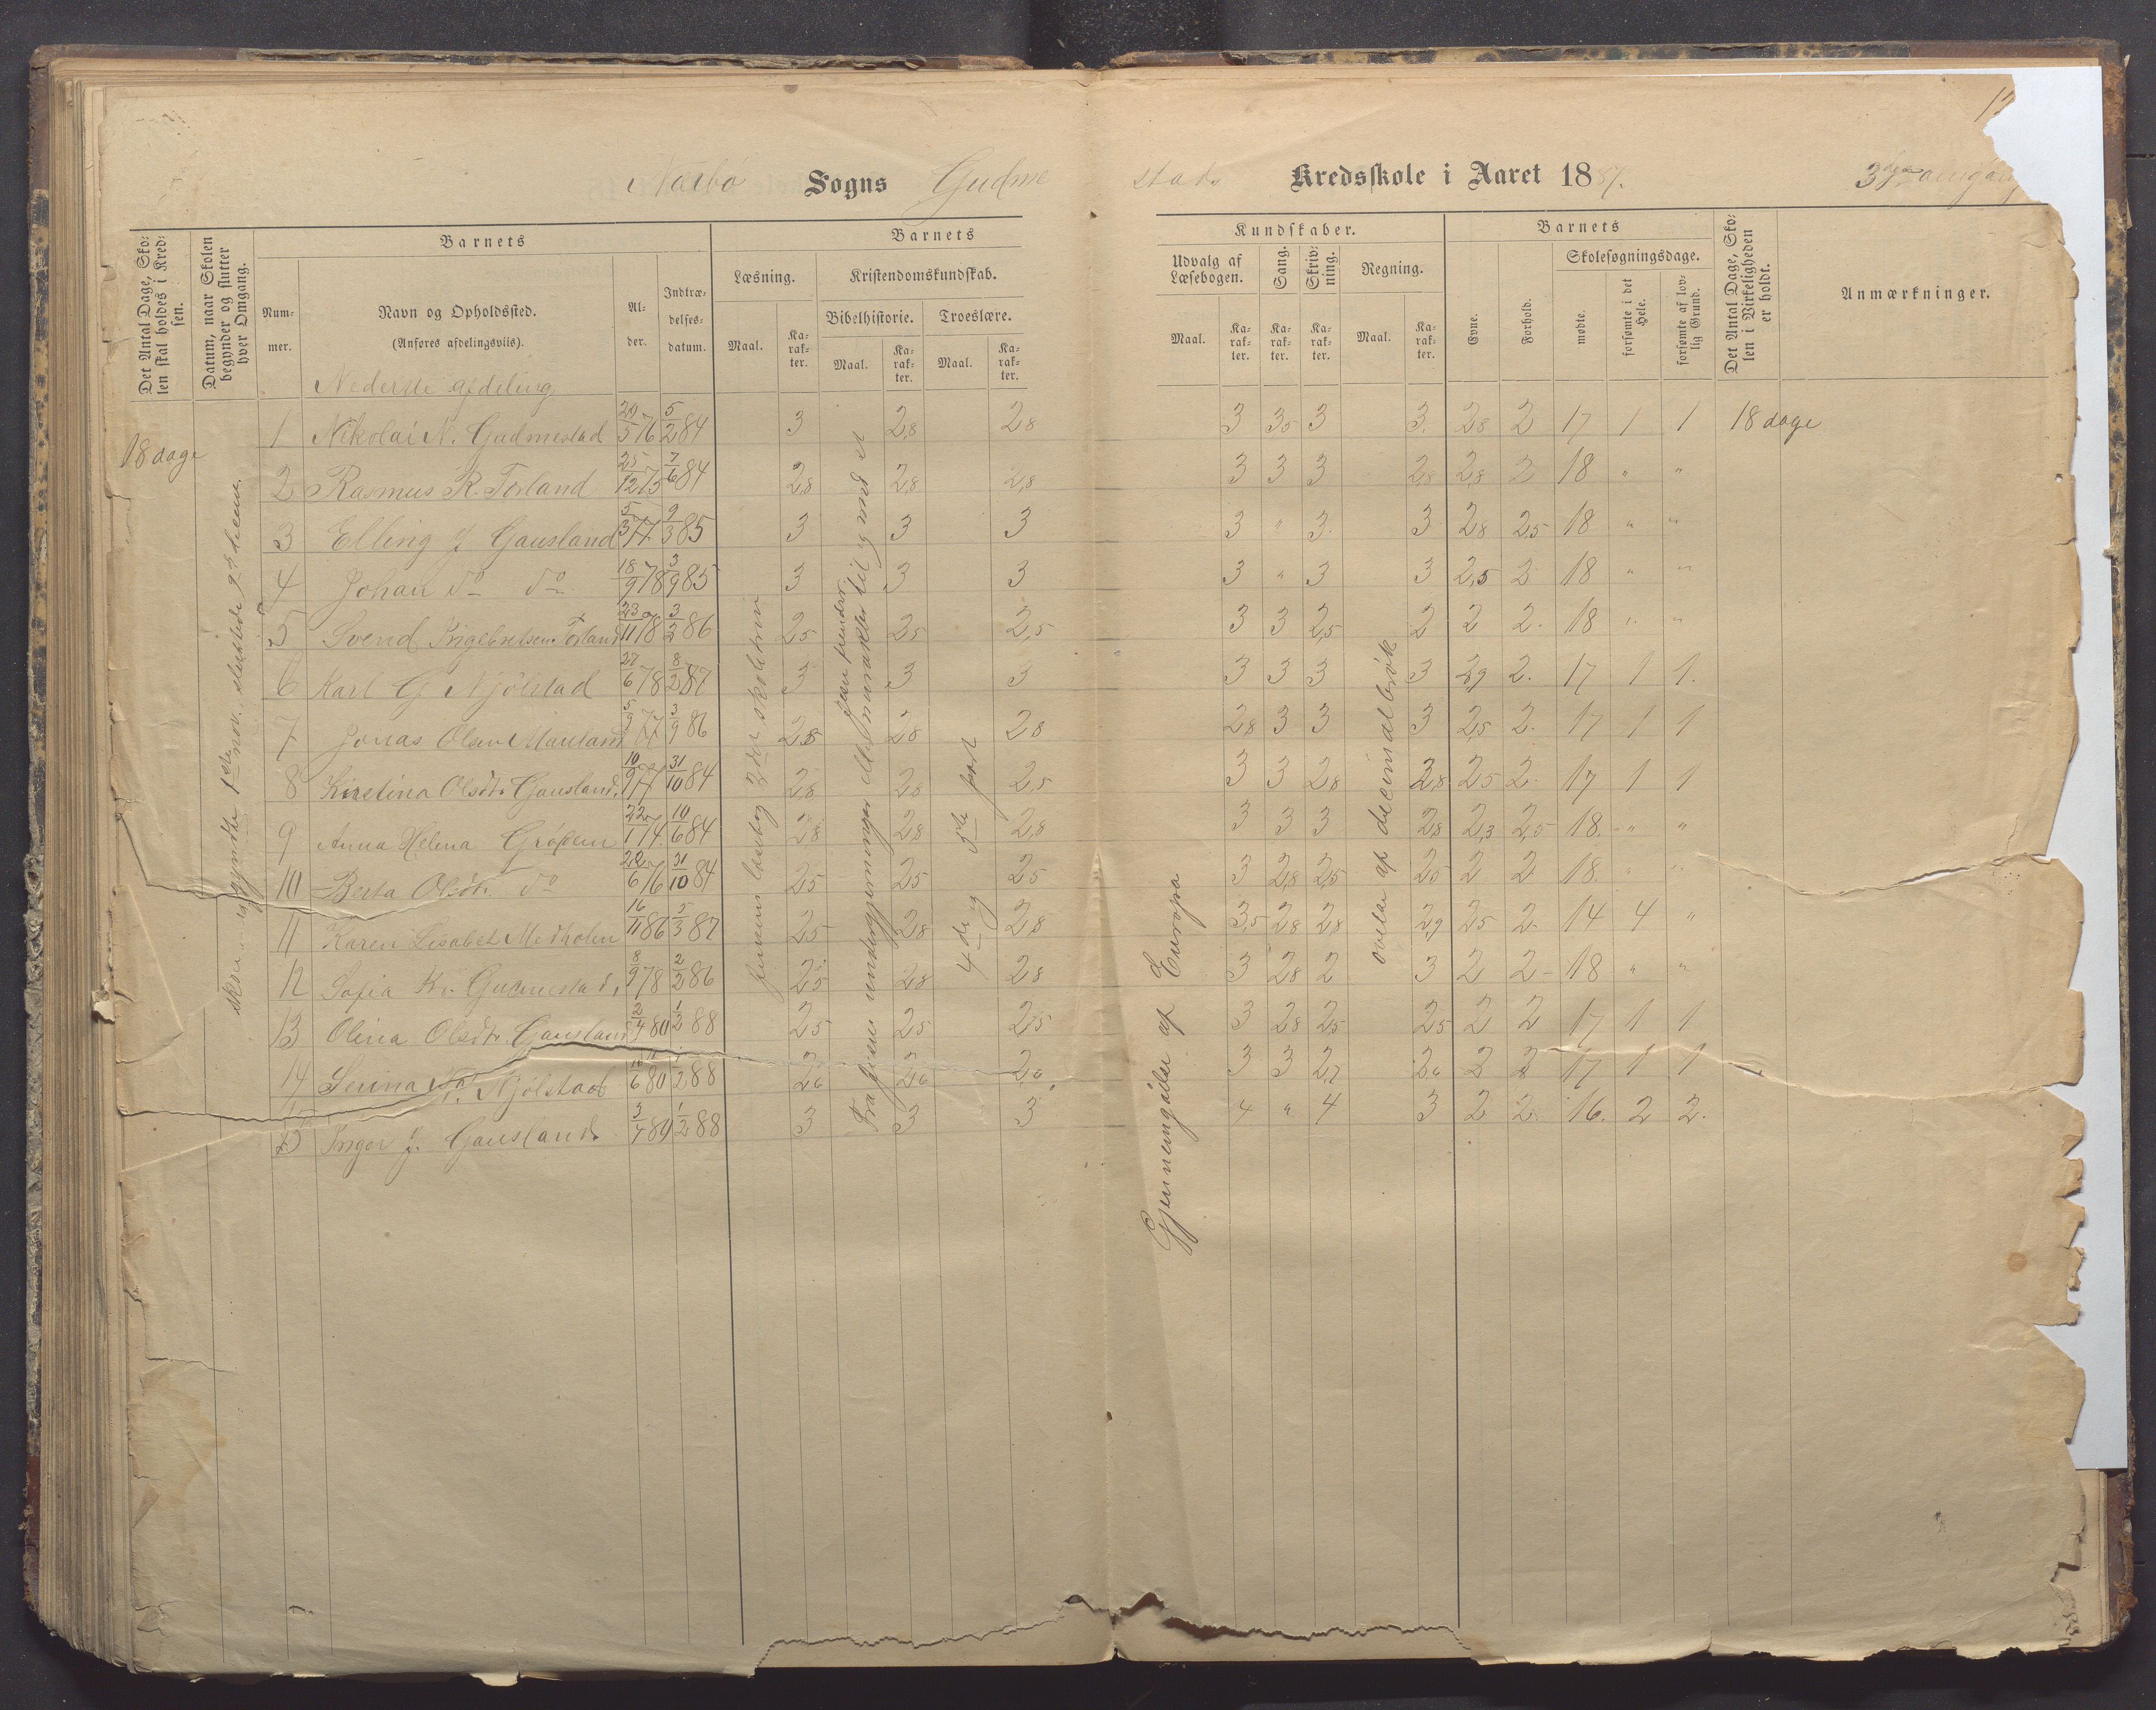 Nærbø Sogns Gudmestads Kredsskole i Aaret 1887. 3dje omgang
Det Antal Dage, Skolen skal holdes i Kredsen.
Datum, naar Skolen begynder og slutter hver Omgang.
Barnets
Nummer.
Navn og Opholdssted.
(Anføres afdelingsviis).
Alder.
Indtrædelsesdatum.
Barnets Kundskaber.
Læsning.
Kristendomskundskab.
Bibelhistorie.
Troeslære.
Maal.
Karakter.
Maal.
Karakter.
Maal.
Karakter.
Udvalg af Læsebogen.
Sang.
Skrivning.
Regning.
Maal.
Karakter.
Karakter.
Karakter.
Maal.
Karakter.
Barnets
Evne.
Forhold.
Skolesøgningsdage.
mødte.
forsømte i det Hele.
forsømte af lovlig Grund.
Det Antal Dage, Skolen i Virkeligheden er holdt.
Anmærkninger.
Nederste afdeling
18 dage
1 Nikolai N. Gudmestad 20/5 76 5/2 84 3 2,8 2,8 3 3,5 3 3. 2,8 2 17 1 1 18 dage
2 Rasmus R. Torland 25/12 75 7/6 84 2,8 2,8 2,8 3 3 3 2,8 2,8 2 18 " "
3 Elling J Gausland 5/3 77. 9/3 85 3 3 3 3 " 3. 3 2,8 2,5 18 " "
4 Johan do do 18/9 78 3/9 85 3 3 3 3 " 3 3 2,5 2 18 " "
5 Svend Ingebretsen Torland 23/11 78 3/2 86 2,5 2,5 2,5 3 3 2,5 2 2 2. 18 " "
6 Karl G Njølstad 27/6 78 8/2 87 3 3 3 3 3 3 3 2,9 2. 17 1 1.
7 Jonas Olsen Mauland 5/9 77 3/9 86 2,8 2,8 2,8 2,8 3 3 3 2,5 2. 17 1 1
8 Kirstina Olsdt. Gausland. 10/9 77 31/10 84 2,8 2,8 2,5 3 3 2,8 2,8 2,5 2. 17 1 1
9 Anna Helena Grøpen 22/1 74. 10/6 84 2,8 2,8 2,8 3 3 3 2,8 2,3 2,5 18. " "
10 Berta Olsdt. do 22/6 76 31/10 84 2,5 2,5 2,5 3 2,8 2,5 2,5 2 2 18. " "
11 Karen Lisabet Medholen 16/11 86 5/3 87 2,5 2,8 2,8 3,5 2,8 2,8 2,9 2,5 2. 14 4 "
12 Sofia Kr. Gudmestad, 8/9 78 2/2 86 2,5 2,8 2,8 3 2,8 2 3 2 2 18 " "
13 Olina Olsdt. Gausland 80 1/2 88 2,5 2,5 2,5 3 2,8 2,5 2,5 2 2 17 1 1
14 Serina Njølstad 80 1/2 88 2,6 2,6 2,6 3 3 2,7 2,6 2 2 17 1 1
15 Inger J. Gausland. 3/4 80 1/2 88 3 3 3 4 " 4 3 2 2. 16. 2 2.
skolen begyndte 1ste nov. sluttede 9de decem.
Jensens læsebog 2det skoletrin
Fra Jesu undergjerninger
4de og 5te part
Gjennemgåelse af Europa
øvelse af decimalbrøk